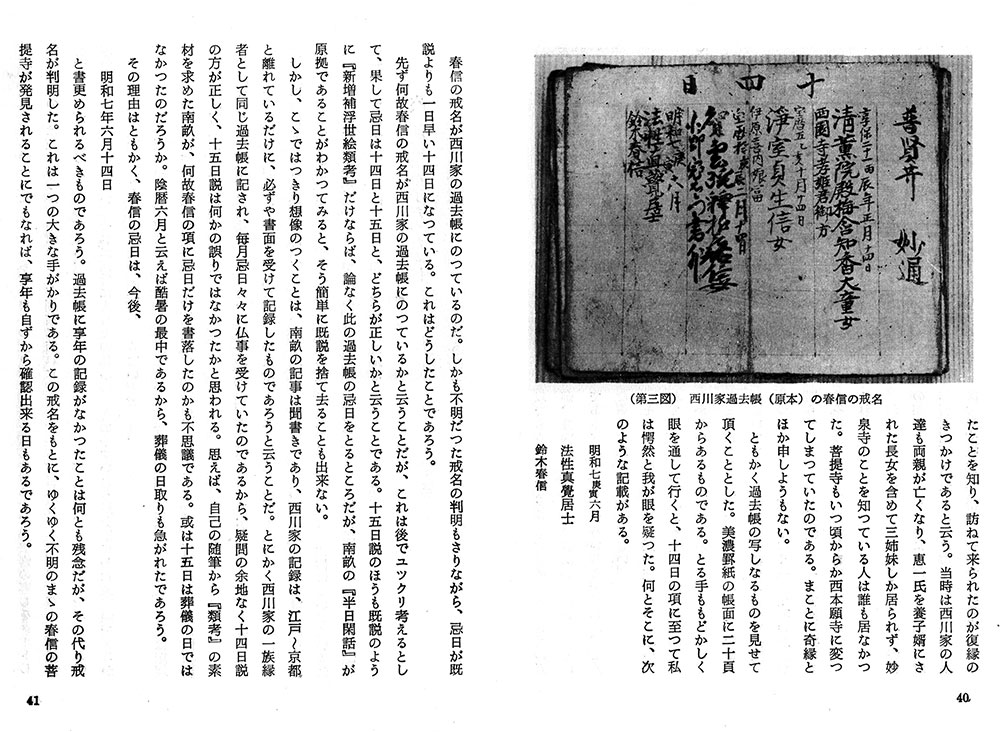 十四日
妙通
清薫院殿梅含知香大童女
淨室貞生信女
明和七庚寅六月
法性真覺居士
鈴木春信
(第三図) 西川家過去帳(原本)の春信の戒名
たことを知り、訪ねて来られたのが復縁の
きつかけであると云う。当時は西川家の人
達も両親が亡くなり、恵一氏を養子婿にさ
れた長女を含めて三姉妹しか居られず、妙
泉寺のことを知つている人は誰も居なかつ
た。菩提寺もいつ頃からか西本願寺に変つ
てしまつていたのである。まことに奇縁と
ほか申しようもない。
ともかく過去帳の写しなるものを見せて
頂くこととした。美濃罫紙の帳面に二十頁
からあるものである。とる手ももどかしく
眼を通して行くと、十四日の項に至つて私
は愕然と我が眼を疑つた。何とそこに、次
のような記載がある。
明和七庚寅六月
法性真覺居士
鈴木春信
40
春信の戒名が西川家の過去帳にのつているのだ。しかも不明だつた戒名の判明もさりながら、忌日が既
説よりも一日早い十四日になつている。これはどうしたことであろう。
先ず何故春信の戒名が西川家の過去帳にのつているかと云うことだが、これは後でユツクリ考えるとし
て、果して忌日は十四日と十五日と、どちらが正しいかと云うことである。十五日説のほうも既説のよう
に『新増補浮世絵類考』だけならば、論なく此の過去帳の忌日をとるところだが、南畝の『半日閑話』が
原拠であることがわかつてみると、そう簡単に既説を捨て去ることも出来ない。
しかし、こゝではつきり想像のつくことは、南畝の記事は聞書きであり、西川家の記録は、江戸〜京都
と離れているだけに、必ずや書面を受けて記録したものであろうと云うことだ。とにかく西川家の一族縁
者として同じ過去帳に記され、毎月忌日々々に仏事を受けていたのであるから、疑問の余地なく十四日説
の方が正しく、十五日説は何かの誤りではなかつたかと思われる。思えば、自己の随筆から『類考』の素
材を求めた南畝が、何故春信の項に忌日だけを書落したのかも不思議である。或は十五日は葬儀の日では
なかつたのだろうか。陰暦六月と云えば酷暑の最中であるから、葬儀の日取りも急がれたであろう。
その理由はともかく、春信の忌日は、今後、
明和七年六月十四日
と書更められるべきものであろう。過去帳に享年の記録がなかつたことは何とも残念だが、その代り戒
名が判明した。これは一つの大きな手がかりである。この戒名をもとに、ゆくゆく不明のまゝの春信の菩
提寺が発見されることにでもなれば、享年も自ずから確認出来る日もあるであろう。
41